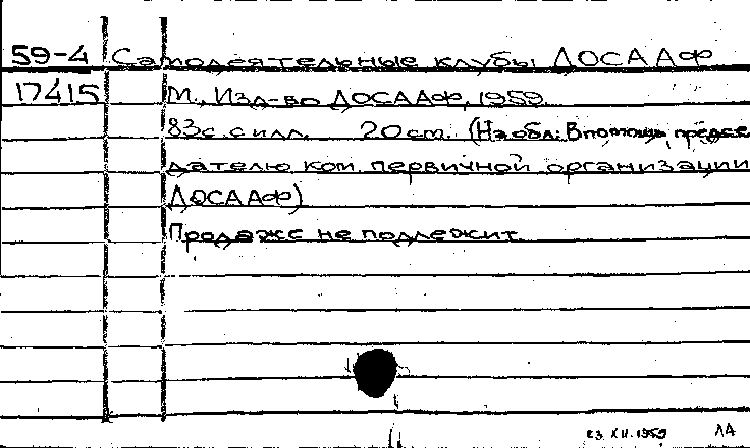 59-4 Самодеятельные клубы ДОСААФ
17415 М., Изд-во ДОСААФ, 1959.
83с. с илл. 20 см. (На обл.: В помощь предсе
дателю ком. первичной организации
ДОСААФ)
Продаже не подлежит
23 XII.1959 ЛА